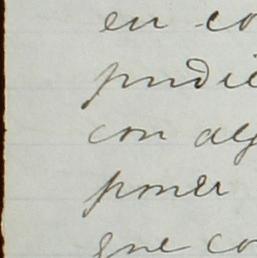 en co
pudie
con alg
poner
que co